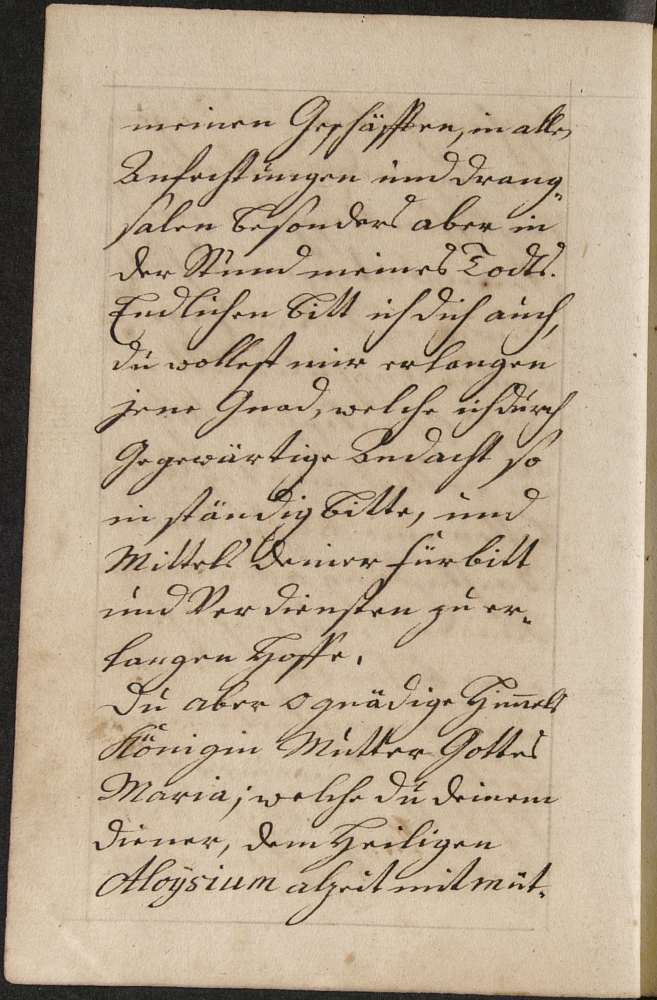 meinen Geschäfften, in allen
Anfechtungen und Drang-
salen besonders aber in
der Stund meines Todts.
Endlichen bitt ich dich auch,
du wollest mir erlangen
jene Gnad, welche ich durch
gegewärtige Andacht so
inständig bitte, und
Mittels deiner fürbitt
und Verdiensten zu er-
langen hoffe.
Du aber o gnädige Him̄els
Königin Mutter Gottes
Maria; welche du deinem
diener, dem heiligen
Aloÿsium alzeit mit müt-